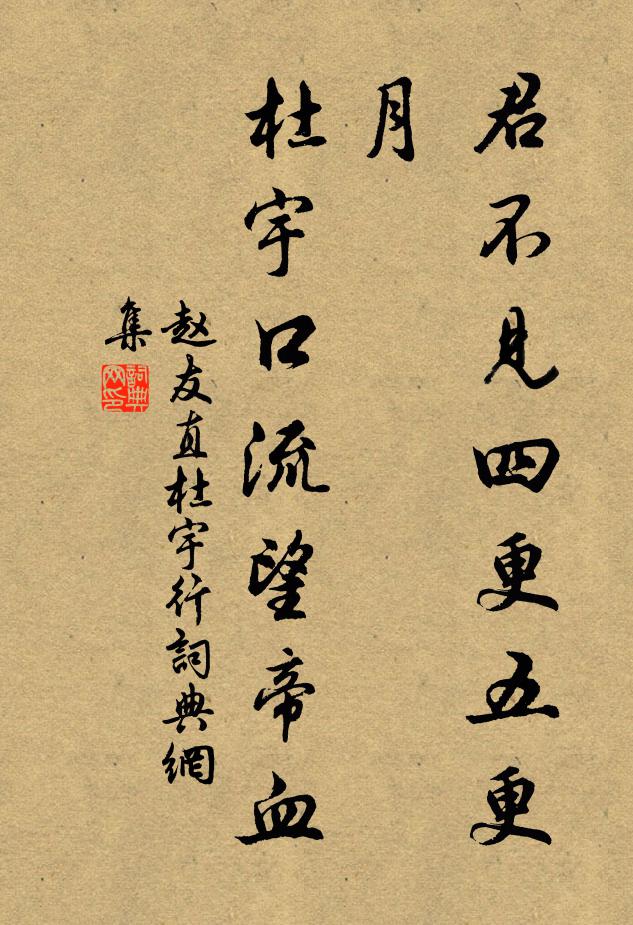 君不見四更五更
月
杜宇口流望帝血
赵友直杜宇行詞典網
集
詞典
网印